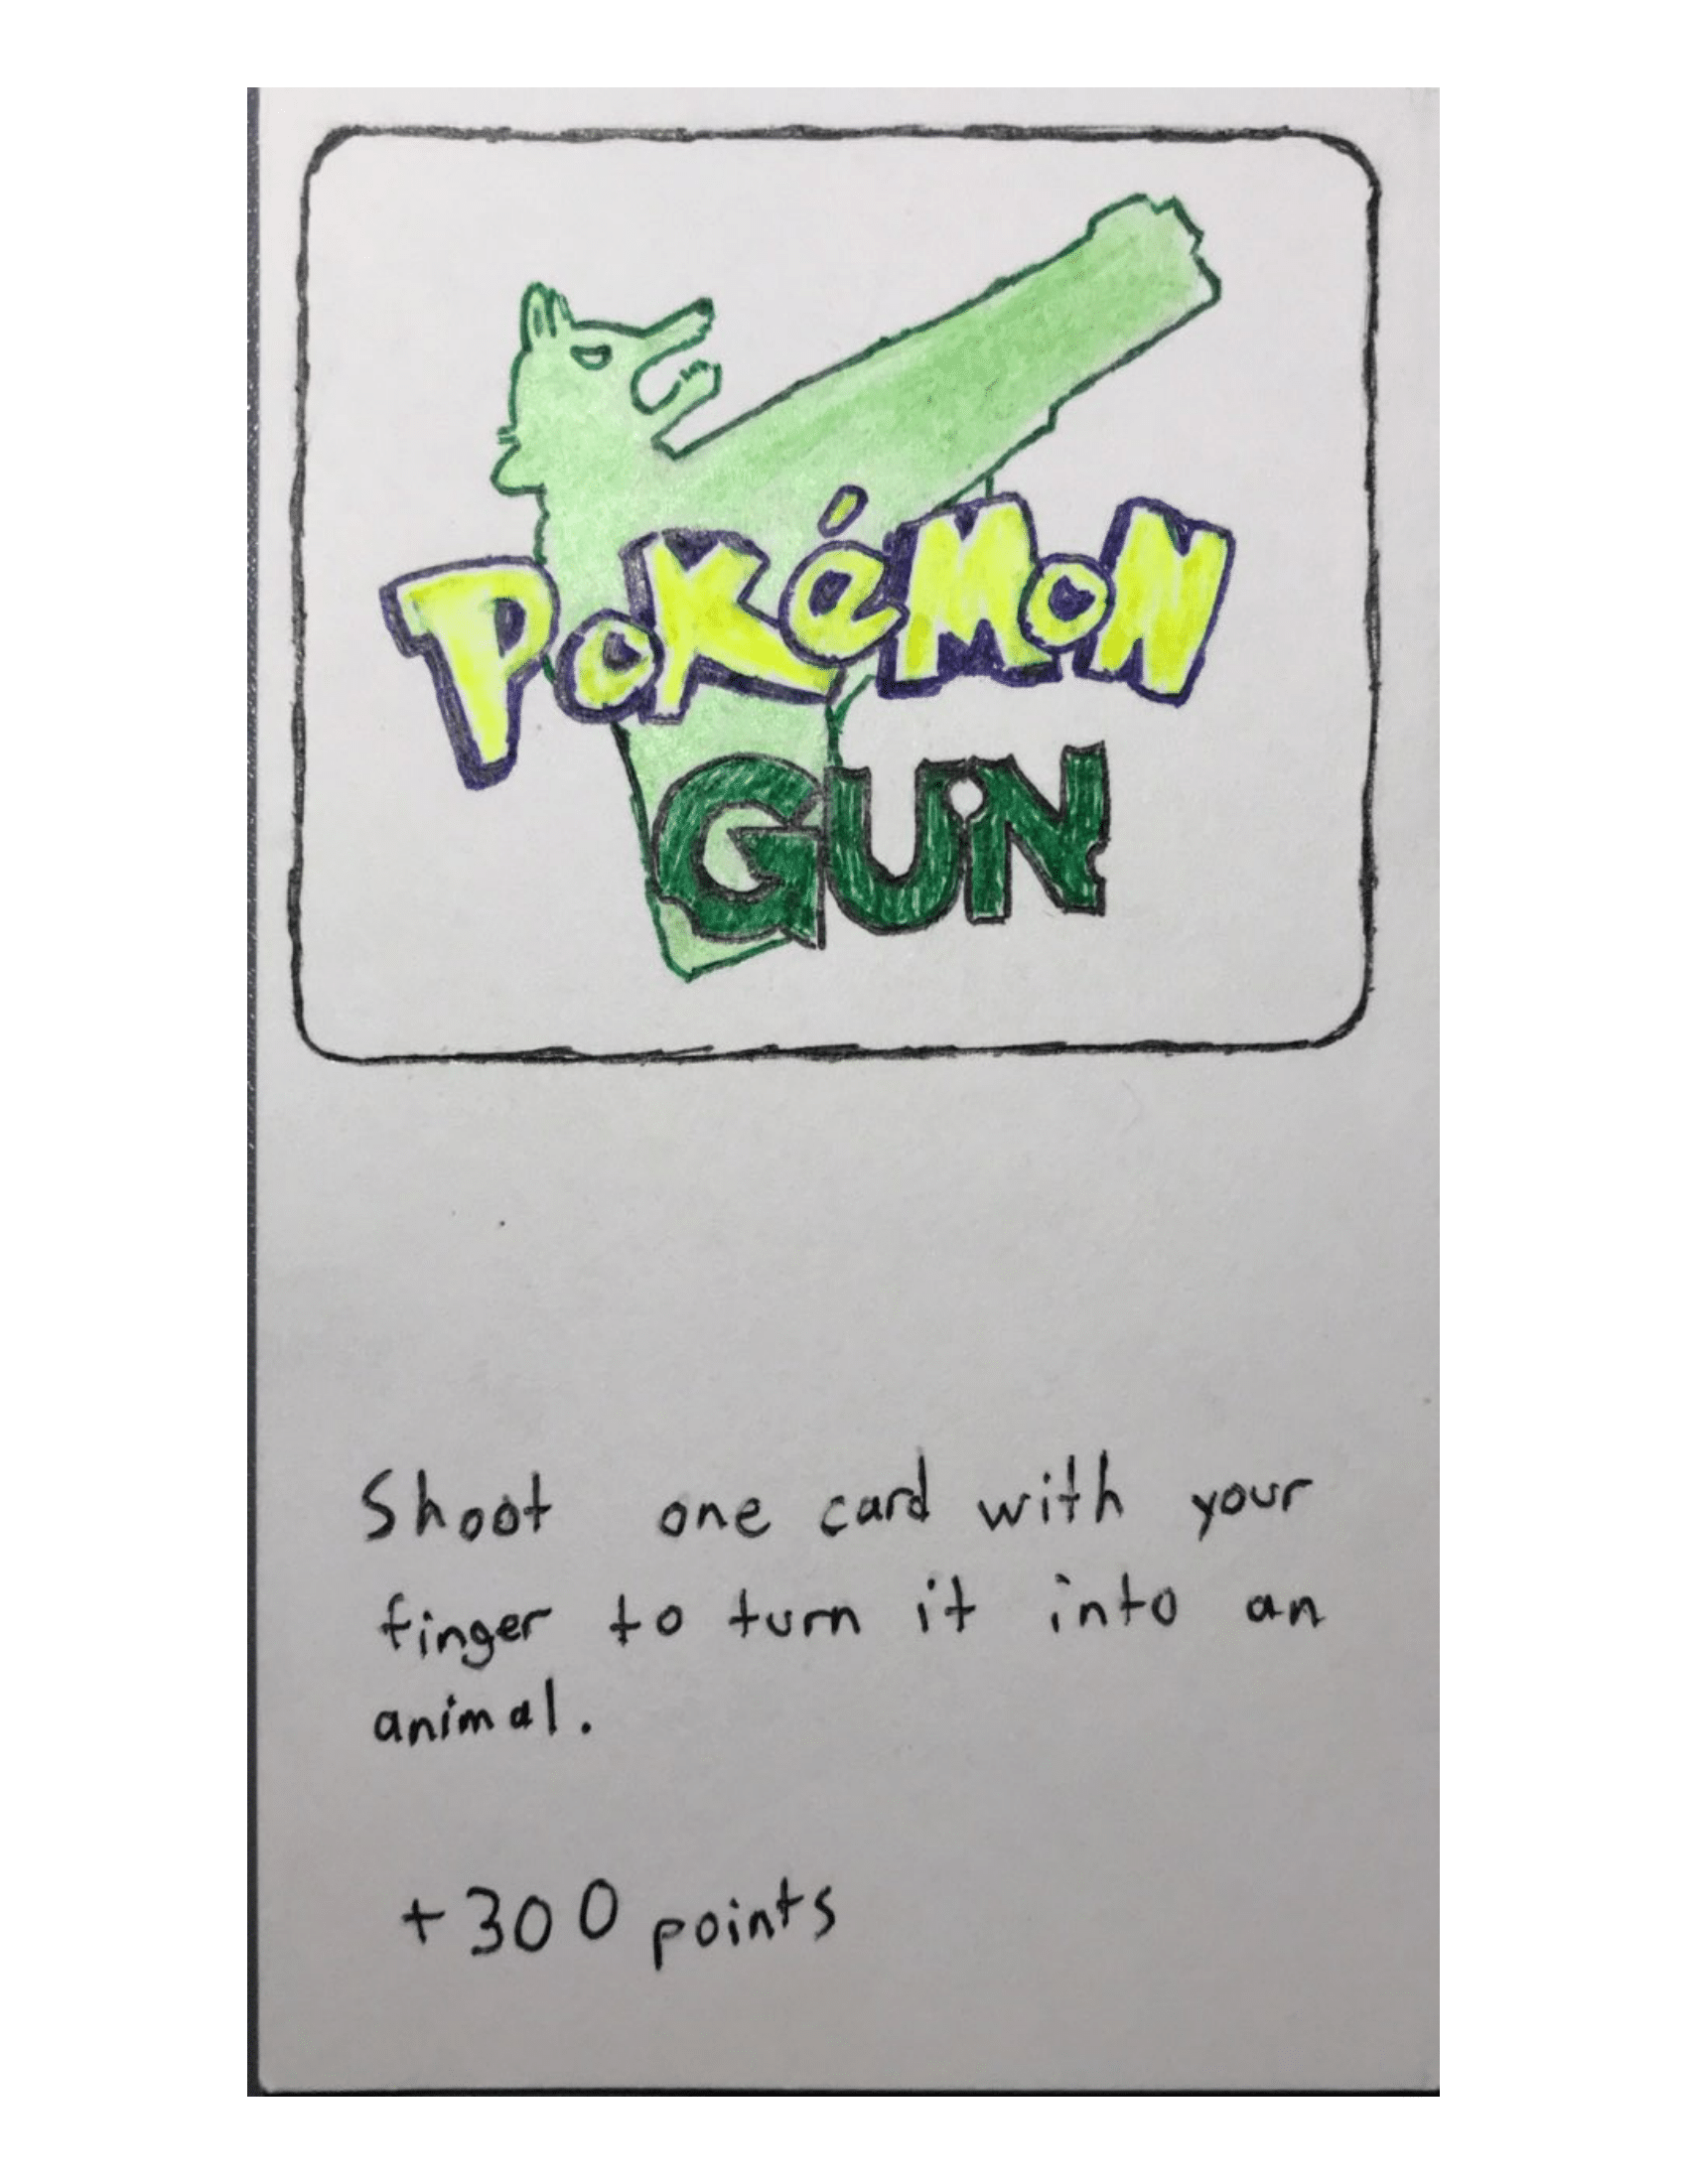 PoKéMoN
GUN
Shoot one card with your
finger to turn it into an
animal.
+300 points